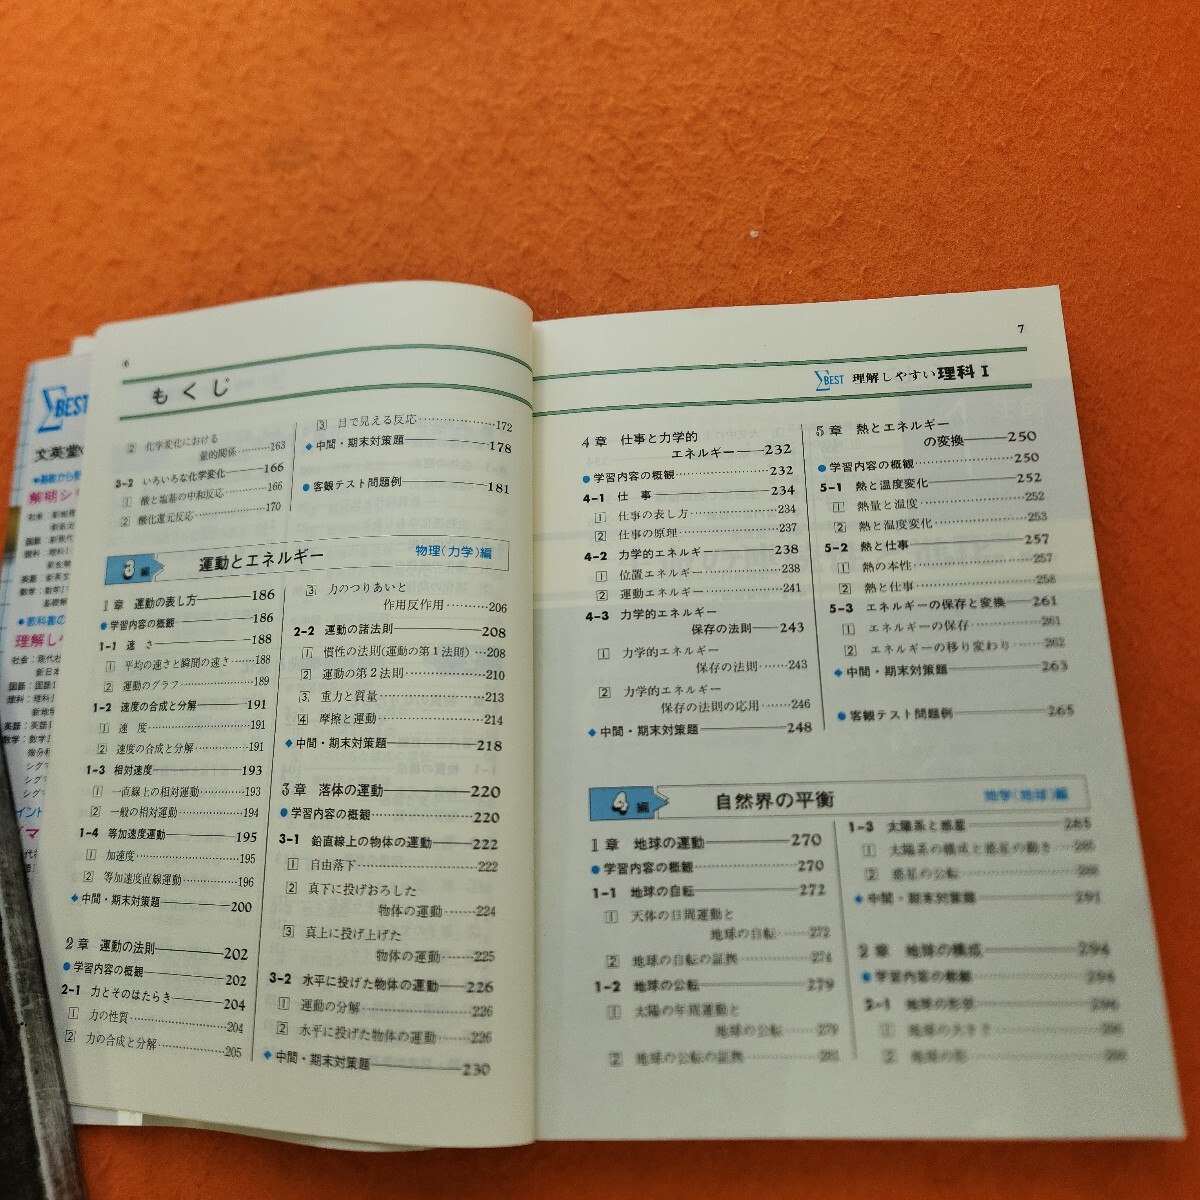 6
もくじ
2 化学変化における
量的関係………163
3-2 いろいろな化学変化——166
1 酸と塩基の中和反応……166
2 酸化還元反応………170
3 目で見える反応………172
◆中間・期末対策題——178
●客観テスト問題例——181
3編 運動とエネルギー 物理(力学)編
1章 運動の表し方——186
●学習内容の概観——186
1-1 速さ——188
1 平均の速さと瞬間の速さ……188
2 運動のグラフ………189
1-2 速度の合成と分解——191
1 速度………191
2 速度の合成と分解………191
1-3 相対速度——193
1 一直線上の相対運動………193
2 一般の相対運動………194
1-4 等加速度運動——195
1 加速度………195
2 等加速度直線運動………196
◆中間・期末対策題——200
2章 運動の法則——202
●学習内容の概観——202
2-1 力とそのはたらき——204
1 力の性質………204
2 力の合成と分解………205
3 力のつりあいと
作用反作用………206
2-2 運動の諸法則——208
1 慣性の法則(運動の第1法則)…208
2 運動の第2法則………210
3 重力と質量………213
4 摩擦と運動………214
◆中間・期末対策題——218
3章 落体の運動——220
●学習内容の概観——220
3-1 鉛直線上の物体の運動——222
1 自由落下………222
2 真下に投げおろした
物体の運動……224
3 真上に投げ上げた
物体の運動……225
3-2 水平に投げた物体の運動——226
1 運動の分解………226
2 水平に投げた物体の運動……226
◆中間・期末対策題——230
7
ΣBEST 理解しやすい理科Ⅰ
4章 仕事と力学的
エネルギー——232
●学習内容の概観………232
4-1 仕事——234
1 仕事の表し方………234
2 仕事の原理………237
4-2 力学的エネルギー——238
1 位置エネルギー………238
2 運動エネルギー………241
4-3 力学的エネルギー
保存の法則——243
1 力学的エネルギー
保存の法則……243
2 力学的エネルギー
保存の法則の応用……246
◆中間・期末対策題——248
5章 熱とエネルギー
の変換——250
●学習内容の概観——250
5-1 熱と温度変化——252
1 熱量と温度………252
2 熱と温度変化………253
5-2 熱と仕事——257
1 熱の本性………257
2 熱と仕事………258
5-3 エネルギーの保存と変換——261
1 エネルギーの保存………261
2 エネルギーの移り変わり……262
◆中間・期末対策題——263
●客観テスト問題例——265
4編 自然界の平衡 地学(地球)編
1章 地球の運動——270
●学習内容の概観——270
1-1 地球の自転——272
1 天体の日周運動と
地球の自転……272
2 地球の自転の証拠………274
1-2 地球の公転——279
1 太陽の年周運動と
地球の公転……279
2 地球の公転の証拠………281
1-3 太陽系と惑星——285
1 太陽系の構成と惑星の動き……285
2 惑星の公転………288
◆中間・期末対策題——291
2章 地球の構成——294
●学習内容の概観——294
2-1 地球の形状——296
1 地球の大きさ
2 地球の形
ΣBEST
文英堂